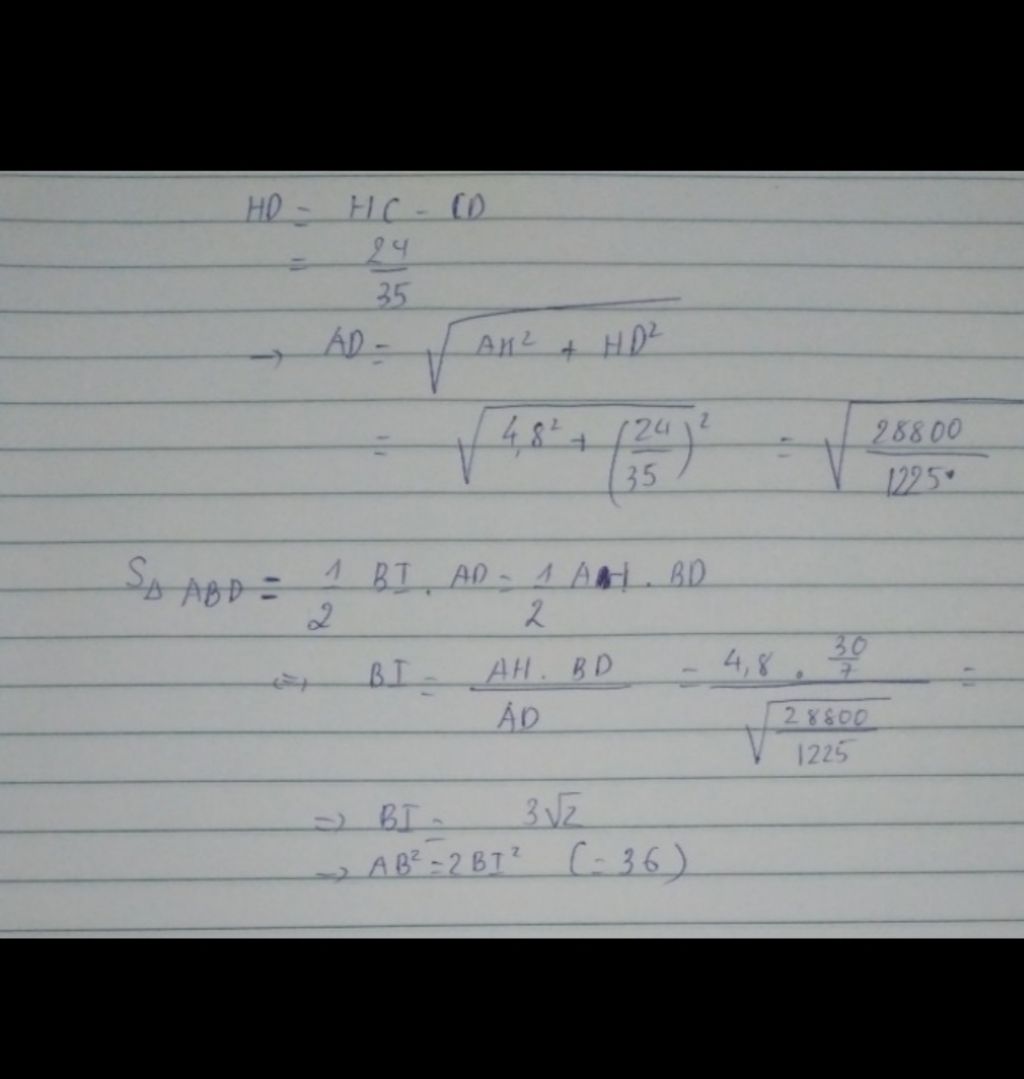 HD = HC - CD
= 24/35
→ AD = √(AH² + HD²)
= √(4,8² + (24/35)²) = √(28800/1225)
S∆ ABD = 1/2 BI . AD = 1/2 AH . BD
<=> BI = AH . BD / AD = 4,8 . 30/7 / √(28800/1225) =
=> BI = 3√2
→ AB² = 2BI² (= 36)